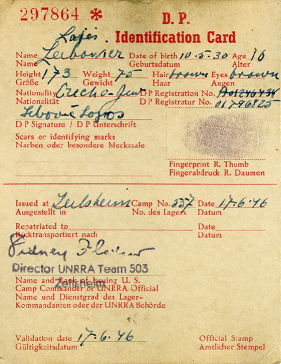 297864 * D. P.
Identification Card
Lajos
Name Leibovier Date of birth 10.5.30 Age 16
Name Geburtsdatum Alter
Height 173 Weight 75 Hair brown Eyes brown
Größe Gewicht Haar Augen
Nationality Czecho-Jew DP Registration No.
Nationalität DP Registratur No. 01796825
DP Signature / DP Unterschrift
Scars or identifying marks
Narben oder besondere Merkmale
Fingerprint R. Thumb
Fingerabdruck R. Daumen
Issued at Zeilsheim Camp No. 557 Date 17-6-46
Ausgestellt in No. des Lagers Datum
Repatriated to Date
Rücktransportiert nach Datum
Sidney Flatow
Director UNRRA Team 503
Zeilsheim
Name and Rank of Issuing U. S.
Camp Commander or UNRRA Official
Name und Dienstgrad des Lager-
Kommandanten oder der UNRRA Behörde
Validation date 17-6-46 Official Stamp
Gültigkeitsdatum Amtlicher Stempel